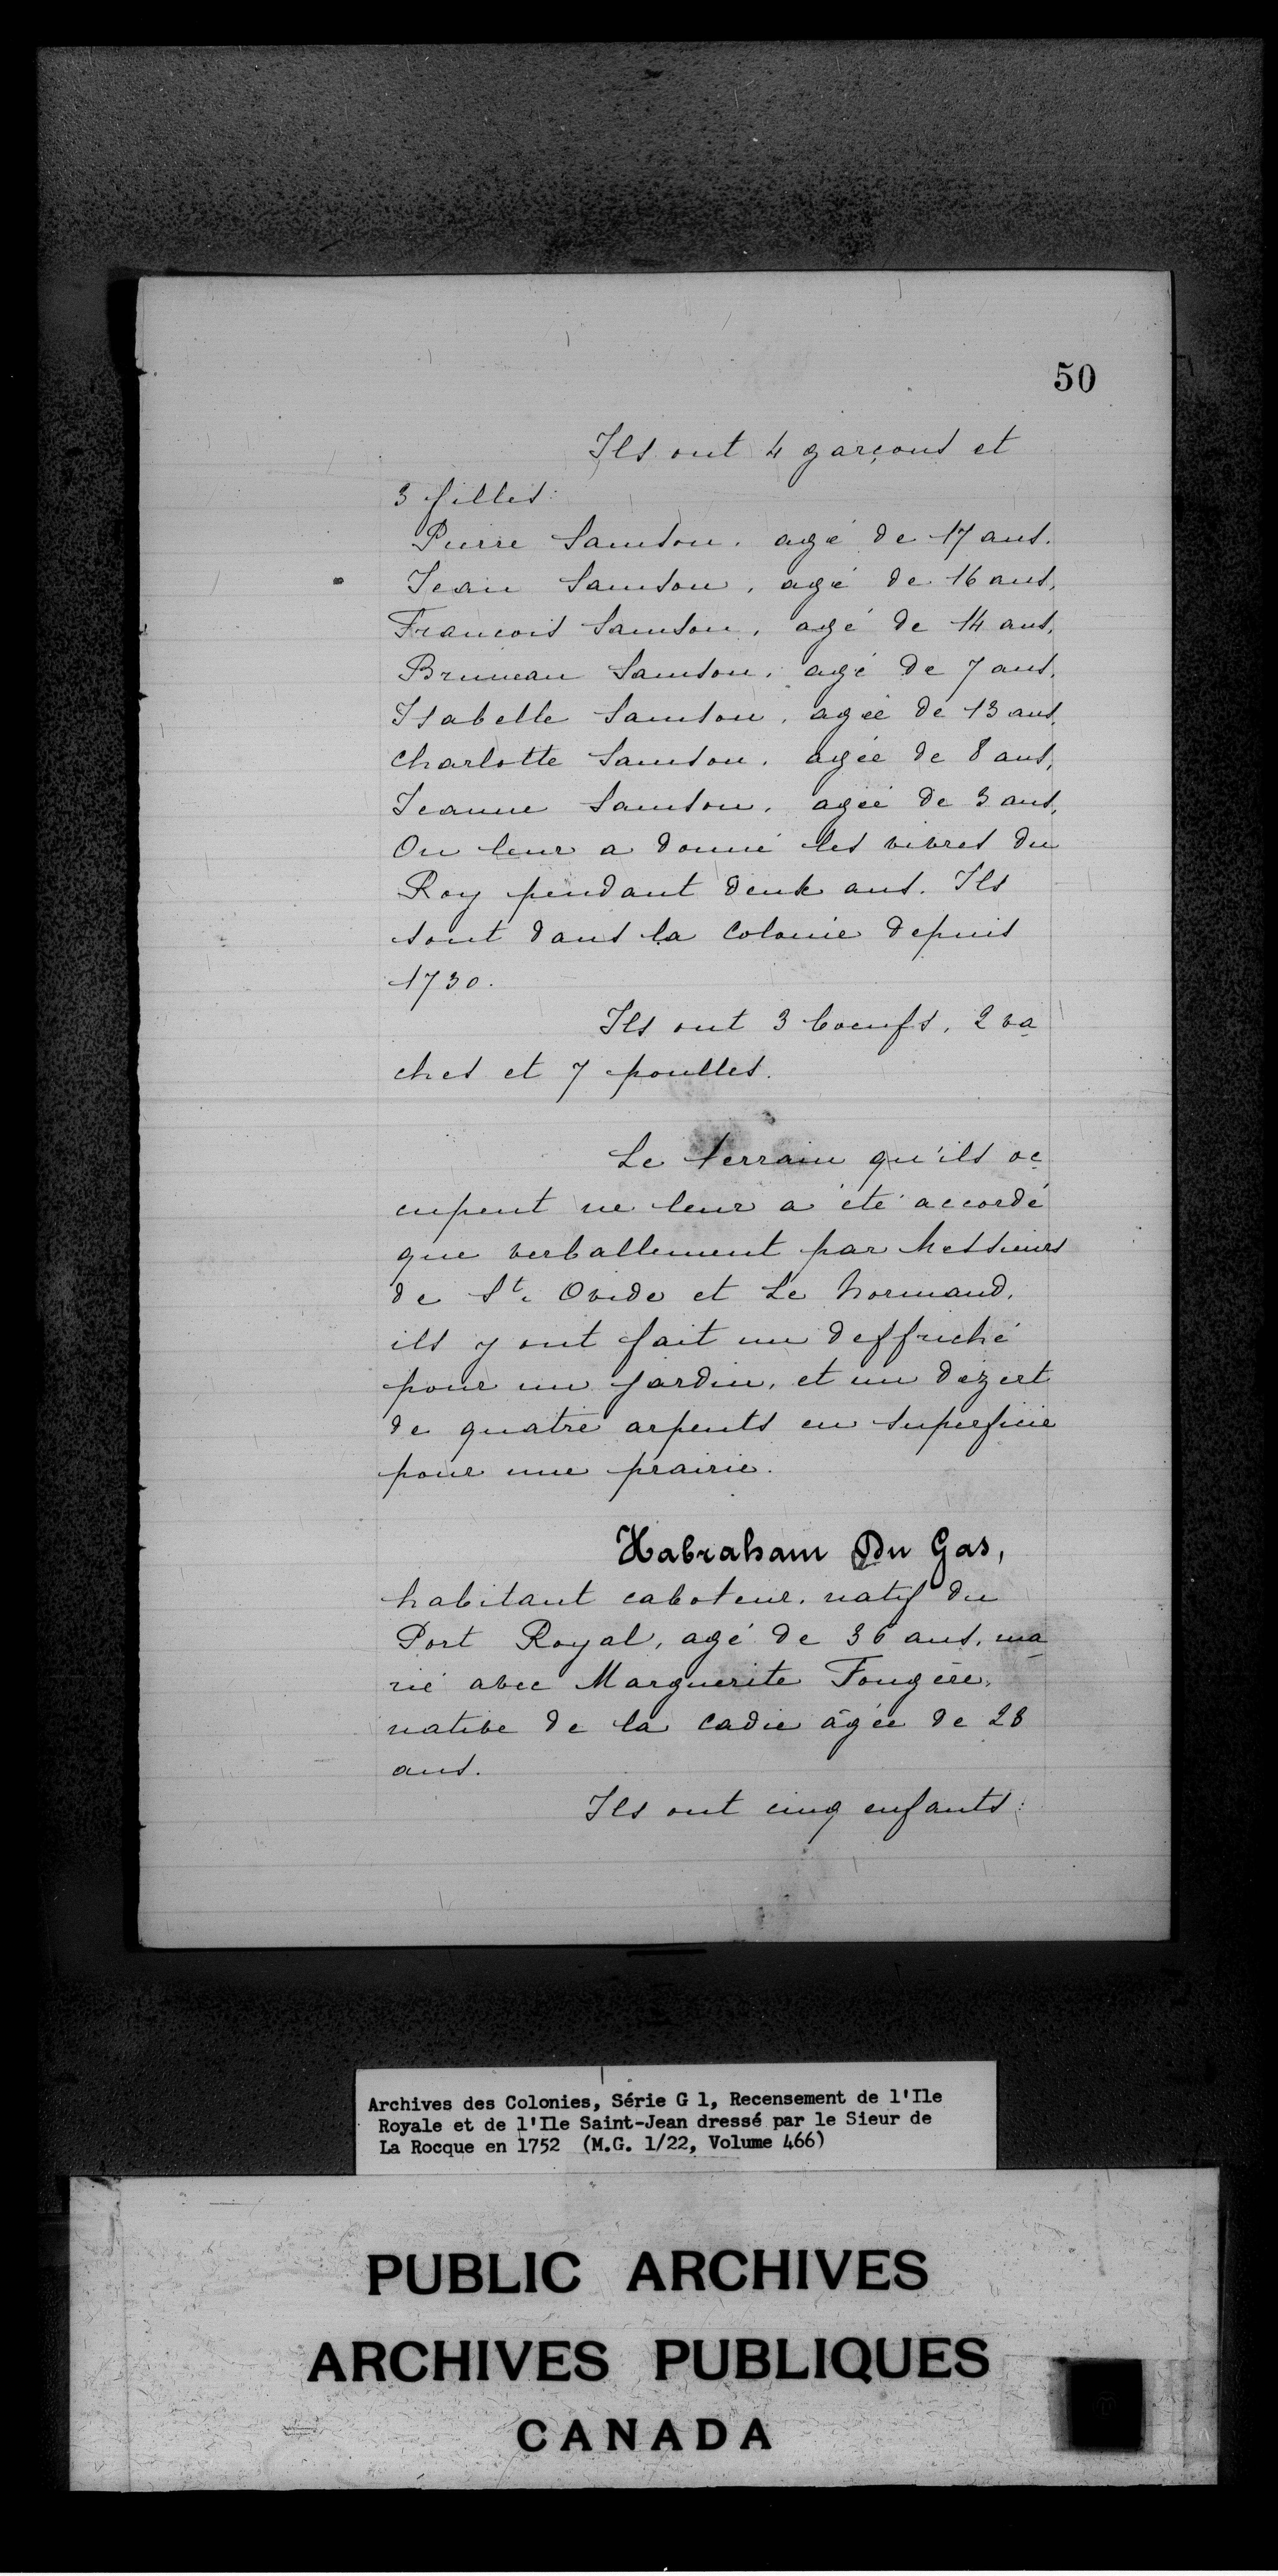 50
Ils ont 4 garçons et
3 filles:
Pierre Samson, agé de 17 ans.
Jean Samson, agé de 16 ans,
Francois Samson, agé de 14 ans,
Bruneau Samson, agé de 7 ans,
Isabelle Samson, agée de 13 ans,
Charlotte Samson, agée de 8 ans,
Jeanne Samson, agée de 3 ans,
On leur a donné les vivres du
Roy pendant deux ans. Ils
sont dans la colonie depuis
1730.
Ils ont 3 boeufs, 2 va
ches et 7 poulles.
Le terrain qu'ils oc
cupent ne leur a été accordé
que verballement par Messieurs
de St. Ovide et Le Normand,
ils y ont fait un deffriché
pour un jardin, et un dezert
de quatre arpents en superficie
pour une prairie.
Habraham Du Gas,
habitant caboteur, natif du
Port Royal, agé de 36 ans, ma
rié avec Marguerite Fougère,
native de la Cadie âgée de 28
ans.
Ils ont cinq enfants:
Archives des Colonies, Série G 1, Recensement de l'Ile
Royale et de l'Ile Saint-Jean dressé par le Sieur de
La Rocque en 1752 (M.G. 1/22, Volume 466)
PUBLIC ARCHIVES
ARCHIVES PUBLIQUES
CANADA